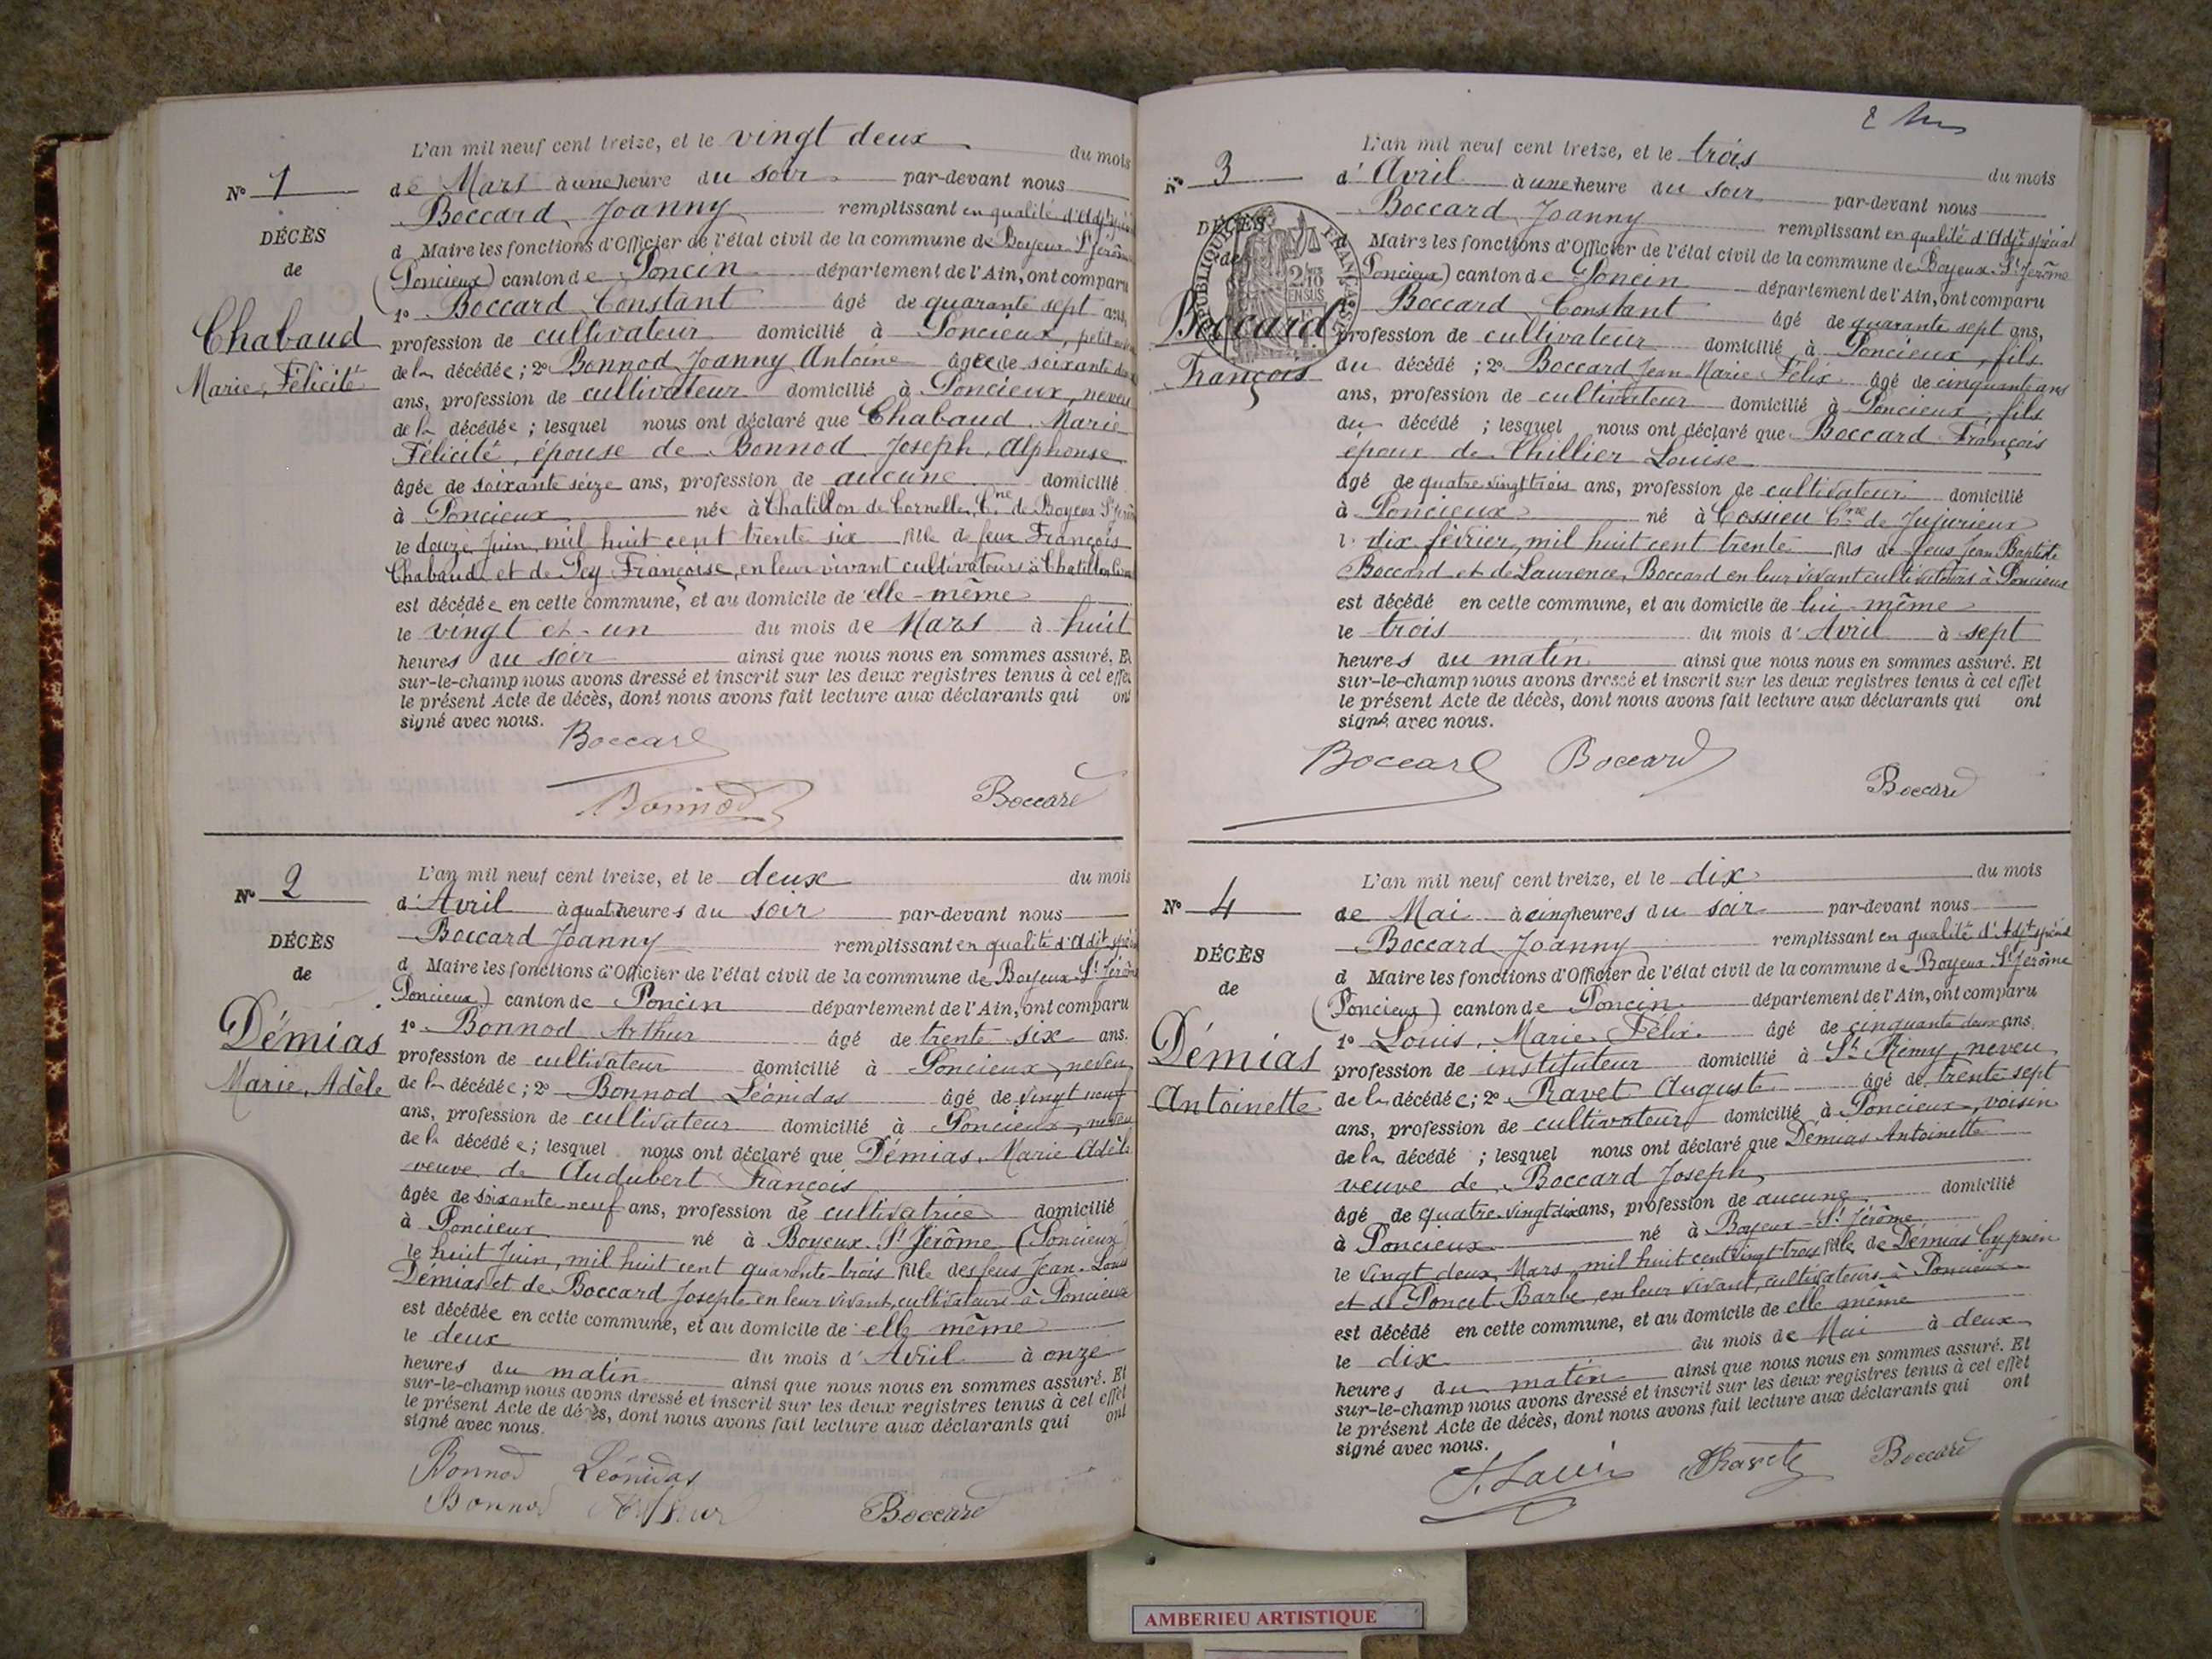 L'an mil neuf cent treize, et le vingt deux du mois
N° 1
de Mars à une heure du soir par-devant nous
Boccard Joanny remplissant en qualité d'Adjt
DÉCÈS
d Maire les fonctions d'Officier de l'état civil de la commune de Boyeux St Jérôme
de
(Poncieux) canton de Poncin département de l'Ain, ont comparu
1° Boccard Constant âgé de quarante sept ans,
Chabaud
profession de cultivateur domicilié à Poncieux, petit
Marie, Félicité
de la décédée ; 2° Bonnod Joanny Antoine âgé de soixante
ans, profession de cultivateur domicilié à Poncieux, neveu
de la décédée ; lesquel nous ont déclaré que Chabaud Marie
Félicité, épouse de Bonnod Joseph, Alphonse
âgée de soixante seize ans, profession de aucune domicilié
à Poncieux née à Chatillon de Cornelle, Cne de Boyeux St Jérôme
le douze Juin, mil huit cent trente six fille de feux François
Chabaud et de Pey Françoise, en leur vivant cultivateurs à Chatillon
est décédée en cette commune, et au domicile de elle-même
le vingt et un du mois de Mars à huit
heures du soir ainsi que nous nous en sommes assuré. Et
sur-le-champ nous avons dressé et inscrit sur les deux registres tenus à cet effet
le présent Acte de décès, dont nous avons fait lecture aux déclarants qui ont
signé avec nous.
Boccard
Bonnod Boccard
L'an mil neuf cent treize, et le deux du mois
N° 2
d'Avril à quatre heures du soir par-devant nous
Boccard Joanny remplissant en qualité d'Adjt spécial
DÉCÈS
d Maire les fonctions d'Officier de l'état civil de la commune de Boyeux-St Jérôme
de
Poncieux) canton de Poncin département de l'Ain, ont comparu
1° Bonnod Arthur âgé de trente six ans.
Démias
profession de cultivateur domicilié à Poncieux, neveu
Marie, Adèle
de la décédée ; 2° Bonnod Léonidas âgé de vingt neuf
ans, profession de cultivateur domicilié à Poncieux, neveu
de la décédée ; lesquel nous ont déclaré que Démias, Marie Adèle
veuve de Audubert François
âgée de soixante neuf ans, profession de cultivatrice domicilié
à Poncieux né à Boyeux-St Jérôme (Poncieux
le huit Juin, mil huit cent quarante-trois fille des feus Jean-Louis
Démias et de Boccard Josepte en leur vivant, cultivateurs à Poncieux
est décédée en cette commune, et au domicile de elle même
le deux du mois d'Avril à onze
heures du matin ainsi que nous nous en sommes assuré. Et
sur-le-champ nous avons dressé et inscrit sur les deux registres tenus à cet effet
le présent Acte de décès, dont nous avons fait lecture aux déclarants qui ont
signé avec nous.
Bonnod Léonidas
Bonnod Arthur Boccard
L'an mil neuf cent treize, et le trois du mois
N° 3
d'Avril à une heure du soir par-devant nous
Boccard Joanny remplissant en qualité d'Adjt spécial
DÉCÈS
Maire les fonctions d'Officier de l'état civil de la commune de Boyeux-St Jérôme
de
Poncieux) canton de Poncin département de l'Ain, ont comparu
RÉPUBLIQUE FRANÇAISE
2/10 EN SUS
Boccard Constant âgé de quarante sept ans,
Boccard
profession de cultivateur domicilié à Poncieux, fils
François
du décédé ; 2° Boccard Jean Marie Félix âgé de cinquante ans
ans, profession de cultivateur domicilié à Poncieux, fils
du décédé ; lesquel nous ont déclaré que Boccard François
époux de Chillier Louise
âgé de quatre vingt trois ans, profession de cultivateur domicilié
à Poncieux né à Cossieu Cne de Jujurieux
l dix février, mil huit cent trente fils de feus Jean Baptiste
Boccard et de Laurence, Boccard en leur vivant cultivateurs à Poncieux
est décédé en cette commune, et au domicile de lui-même
le trois du mois d'Avril à sept
heures du matin ainsi que nous nous en sommes assuré. Et
sur-le-champ nous avons dressé et inscrit sur les deux registres tenus à cet effet
le présent Acte de décès, dont nous avons fait lecture aux déclarants qui ont
signé avec nous.
Boccard Boccard
Boccard
L'an mil neuf cent treize, et le dix du mois
N° 4
de Mai à cinq heures du soir par-devant nous
Boccard Joanny remplissant en qualité d'Adjt spécial
DÉCÈS
d Maire les fonctions d'Officier de l'état civil de la commune de Boyeux-St Jérôme
de
(Poncieux) canton de Poncin département de l'Ain, ont comparu
1° Louis, Marie, Félix. âgé de cinquante deux ans.
Démias
profession de instituteur domicilié à St Rémy, neveu
Antoinette
de la décédée ; 2° Ravet Auguste âgé de trente sept
ans, profession de cultivateur domicilié à Poncieux, voisin
de la décédé ; lesquel nous ont déclaré que Démias Antoinette
veuve de Boccard Joseph
âgé de quatre-vingt dix ans, profession de aucune domicilié
à Poncieux né à Boyeux-St Jérôme
le vingt deux Mars, mil huit cent vingt trois fille de Démias Cyprien
et de Poncet Barbe, en leur vivant, cultivateurs à Poncieux
est décédé en cette commune, et au domicile de elle même
le dix du mois de Mai à deux
heures du matin ainsi que nous nous en sommes assuré. Et
sur-le-champ nous avons dressé et inscrit sur les deux registres tenus à cet effet
le présent Acte de décès, dont nous avons fait lecture aux déclarants qui ont
signé avec nous.
F. Louis Ravet Boccard
AMBERIEU ARTISTIQUE